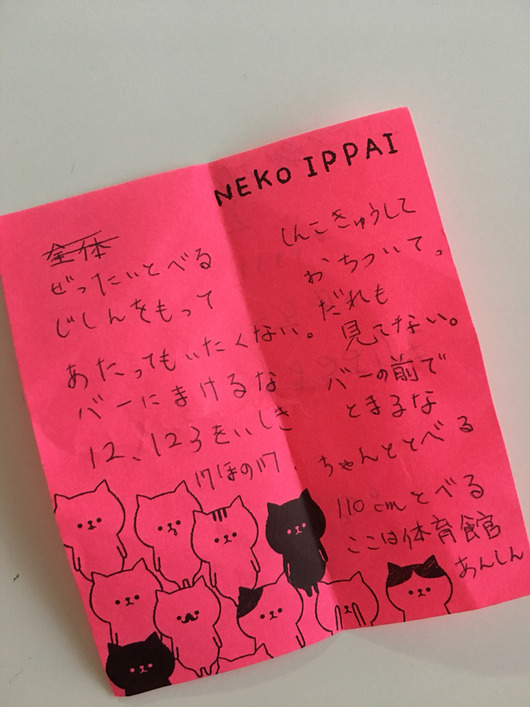 NEKO IPPAI
全体
ぜったいとべる
じしんをもって
あたってもいたくない。
バーにまけるな
12、123をいしき
しんこきゅうして
おちついて。
だれも
見てない。
バーの前で
とまるな
ちゃんととべる
110cmとべる
ここは体育館
あんしん